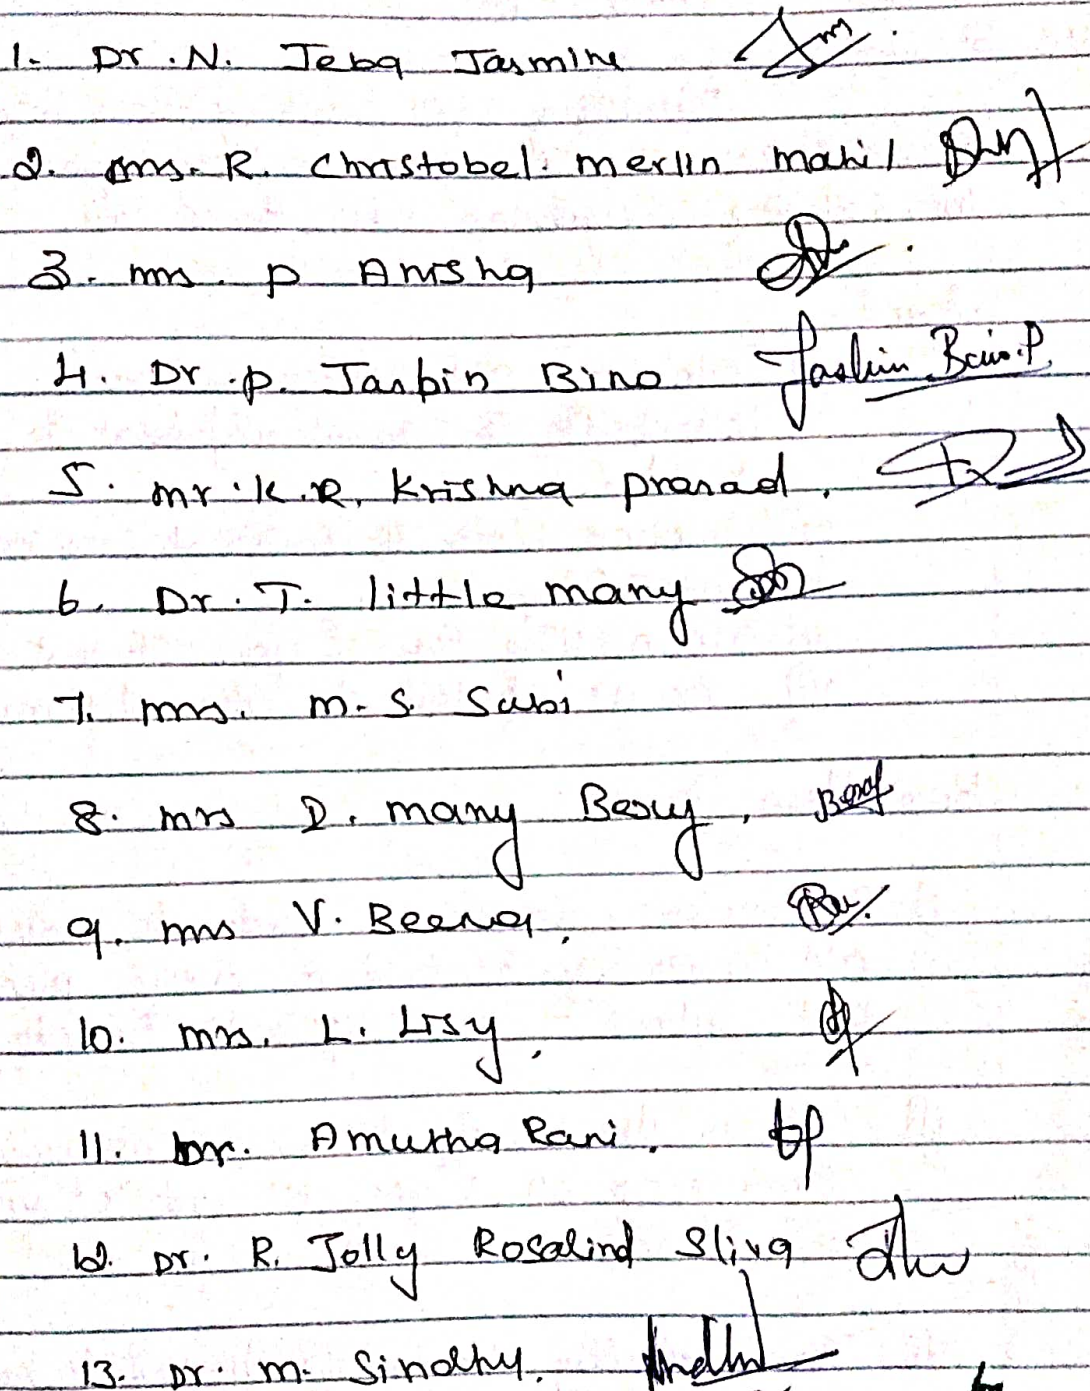 1. Dr. N. Jeba Jasmine
2. Mrs. R. Christobel. merlin mahil
3. mrs. p Anisha
4. Dr. p. Jasbin Bino Jasbin Bino.P.
5. mr. K.R. Krishna prasad.
6. Dr. T. little many
7. mrs. m. S. Subi
8. mrs D. many Besuy.
9. mrs V. Beena.
10. mrs. L. Lisy.
11. Dr. Amutha Rani.
12. Dr. R. Jolly Rosalind Sliva
13. Dr. m. Sindhy.